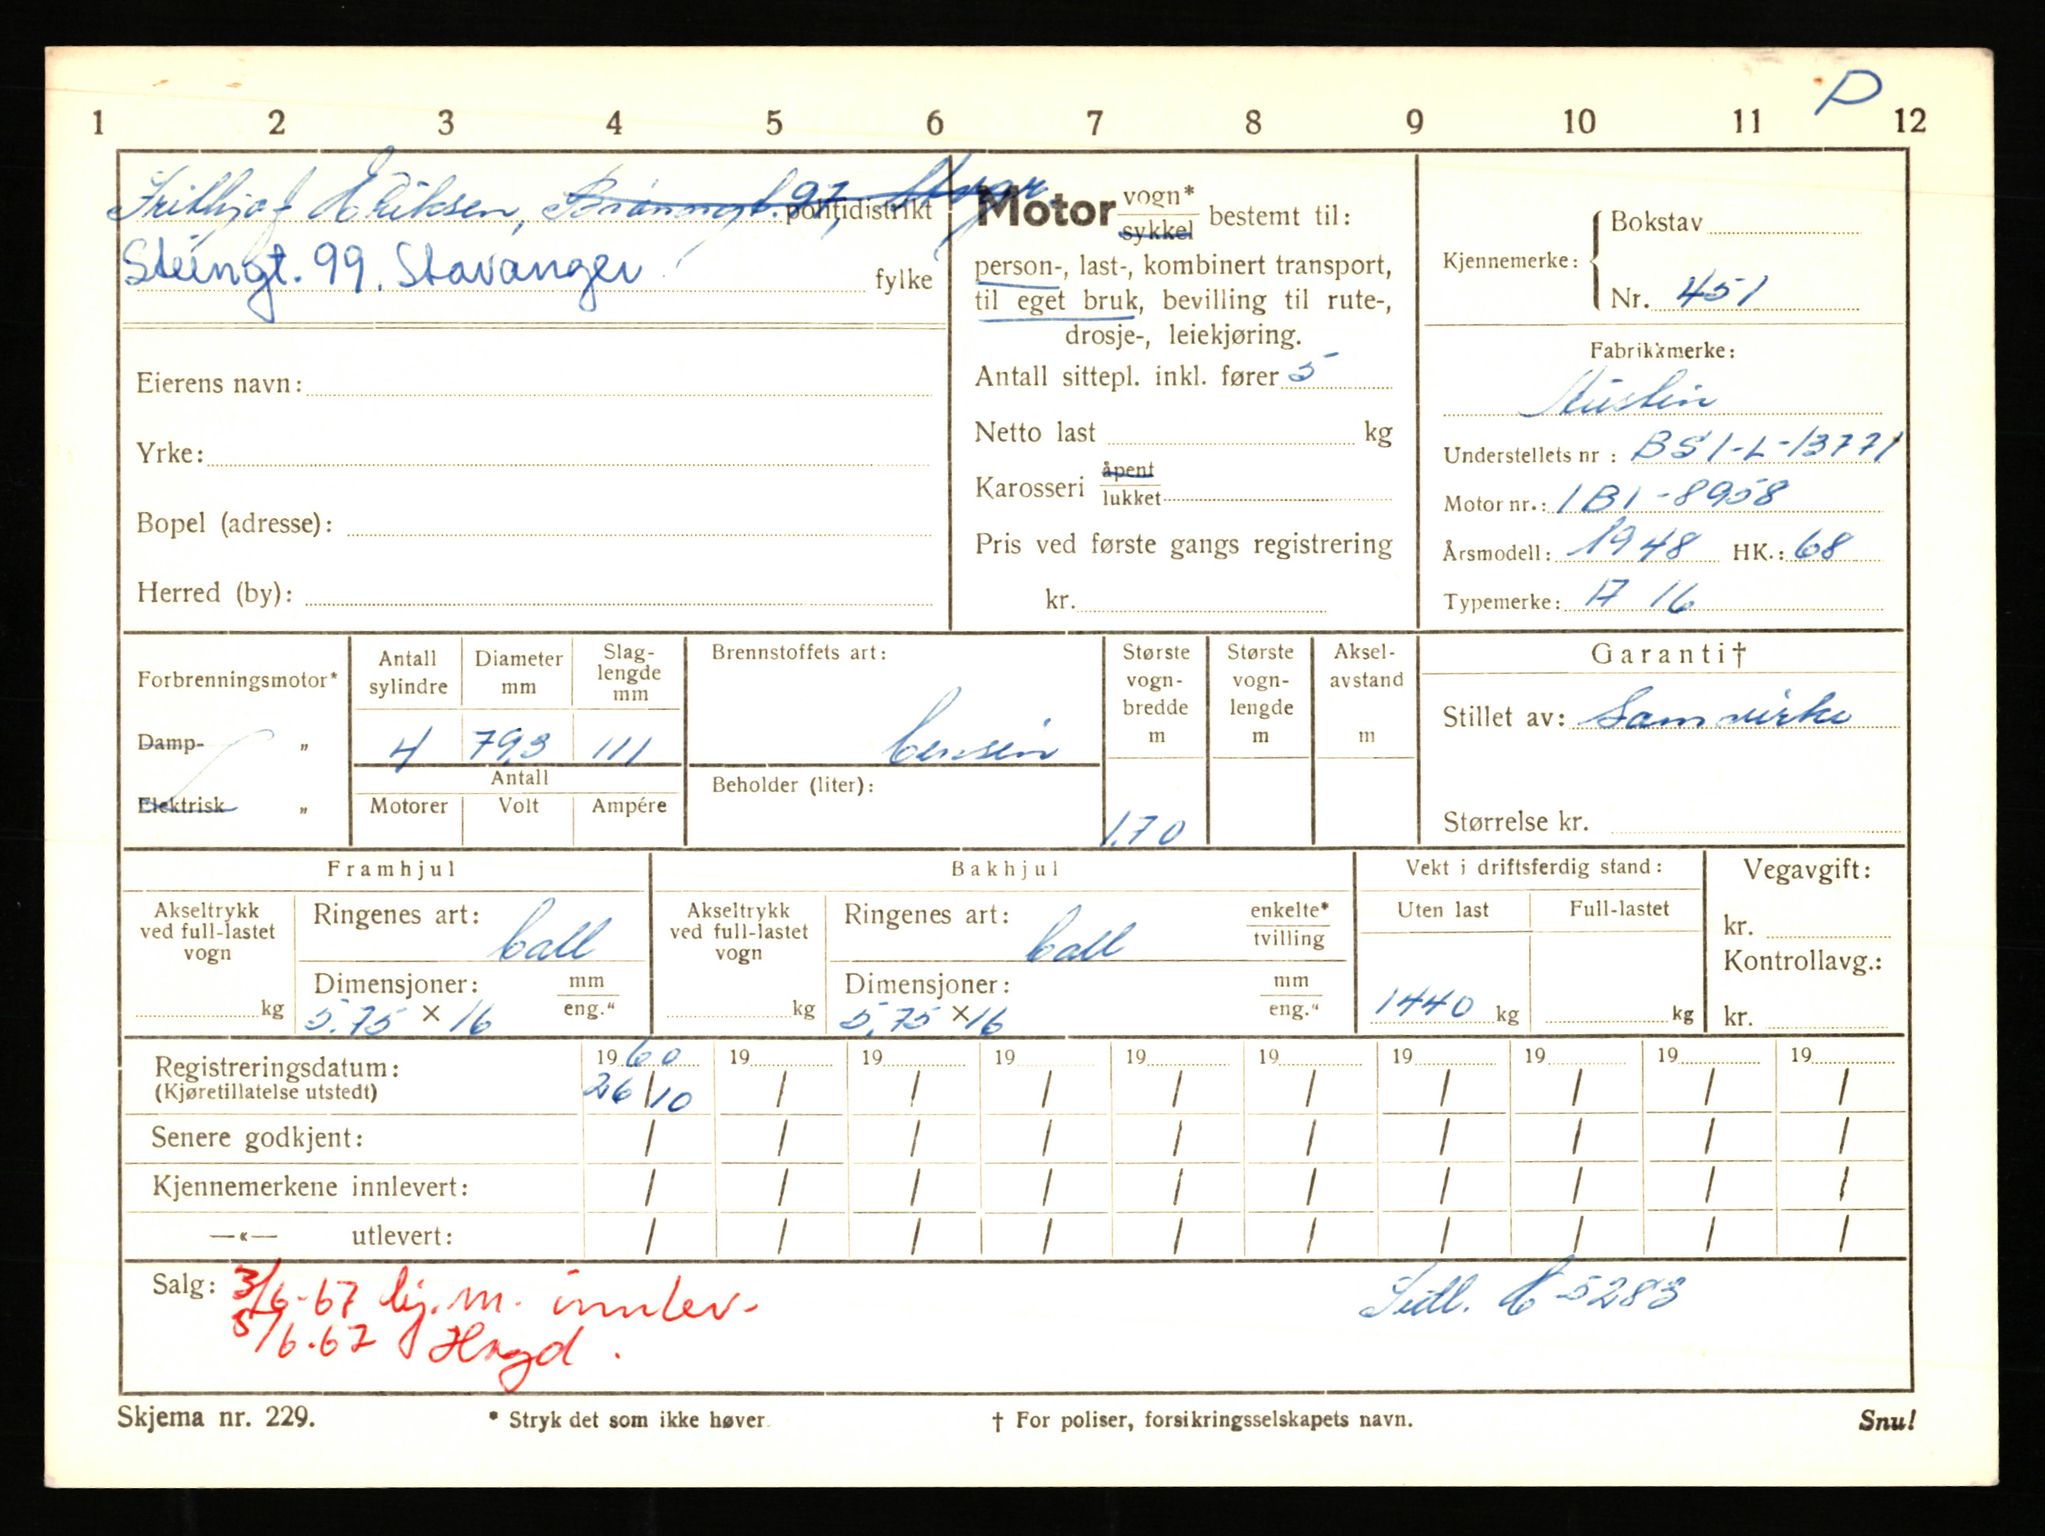 P
1 2 3 4 5 6 7 8 9 10 11 12
Frithjof Eriksen, politidistrikt
Steingt. 99, Stavanger fylke
Eierens navn:
Yrke:
Bopel (adresse):
Herred (by):
Motor vogn* sykkel bestemt til:
person-, last-, kombinert transport,
til eget bruk, bevilling til rute-,
drosje-, leiekjøring.
Antall sittepl. inkl. fører 5
Netto last kg
Karosseri åpent lukket
Pris ved første gangs registrering
kr.
Kjennemerke: Bokstav
Nr. 451
Fabrikkmerke:
Austin
Understellets nr: BS1-L-13771
Motor nr.: 1B1-8958
Årsmodell: 1948 HK.: 68
Typemerke: A 16
Forbrenningsmotor*
Damp- „
Elektrisk „
Antall sylindre Diameter mm Slag-lengde mm
4 79,3 111
Antall
Motorer Volt Ampére
Brennstoffets art:
bensin
Beholder (liter):
Største vogn-bredde m
1.70
Største vogn-lengde m
Aksel-avstand m
Garanti†
Stillet av: Samvirke
Størrelse kr.
Framhjul
Akseltrykk ved full-lastet vogn
kg
Ringenes art: ball
Dimensjoner: mm eng."
5.75 × 16
Bakhjul
Akseltrykk ved full-lastet vogn
kg
Ringenes art: enkelte* tvilling
ball
Dimensjoner: mm eng."
5.75 × 16
Vekt i driftsferdig stand:
Uten last Full-lastet
1440 kg kg
Vegavgift:
kr.
Kontrollavg.:
kr.
Registreringsdatum: 1960 19 19 19 19 19 19 19 19 19
(Kjøretillatelse utstedt) 26/10 / / / / / / / / /
Senere godkjent: / / / / / / / / / /
Kjennemerkene innlevert: / / / / / / / / / /
—«— utlevert: / / / / / / / / / /
Salg: 3/6-67 kj.m. innlev-
5/6.67
5283
Skjema nr. 229. * Stryk det som ikke høver. † For poliser, forsikringsselskapets navn. Snu!